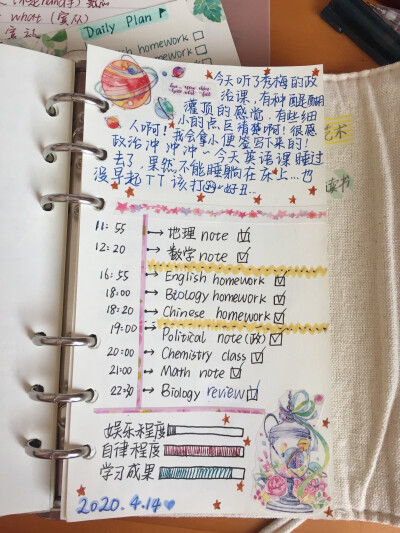 what (宾从)
Daily Plan
English homework
今天听了秀梅的政
治课,有种醍醐
灌顶的感觉,有些细
小的点巨清楚啊!很感
人啊!我会拿小便签写下来的!
政治冲冲冲~今天英语课睡过
去了,果然不能睡躺在床上...也
没早起TT该打 好丑...
11:55 → 地理 note
12:20 → 数学 note
16:55 → English homework
18:00 → Biology homework
18:20 → Chinese homework
19:00 → Political note (政)
20:00 → Chemistry class
21:00 → Math note
22:20 → Biology review
娱乐程度
自律程度
学习成果
2020.4.14
艺术
读书